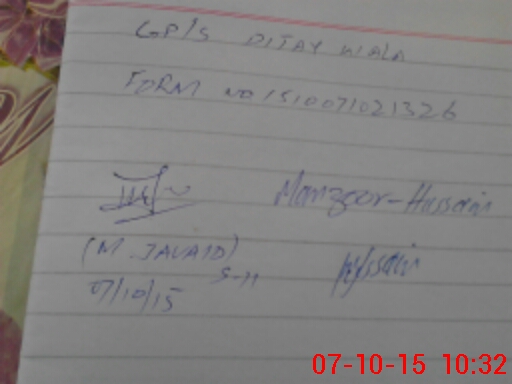 GP/S DITAY WALA
FORM NO 1510071021326
Manzoor-Hussain
(M. JAVAID) Hussain
S-11
07/10/15
07-10-15 10:32